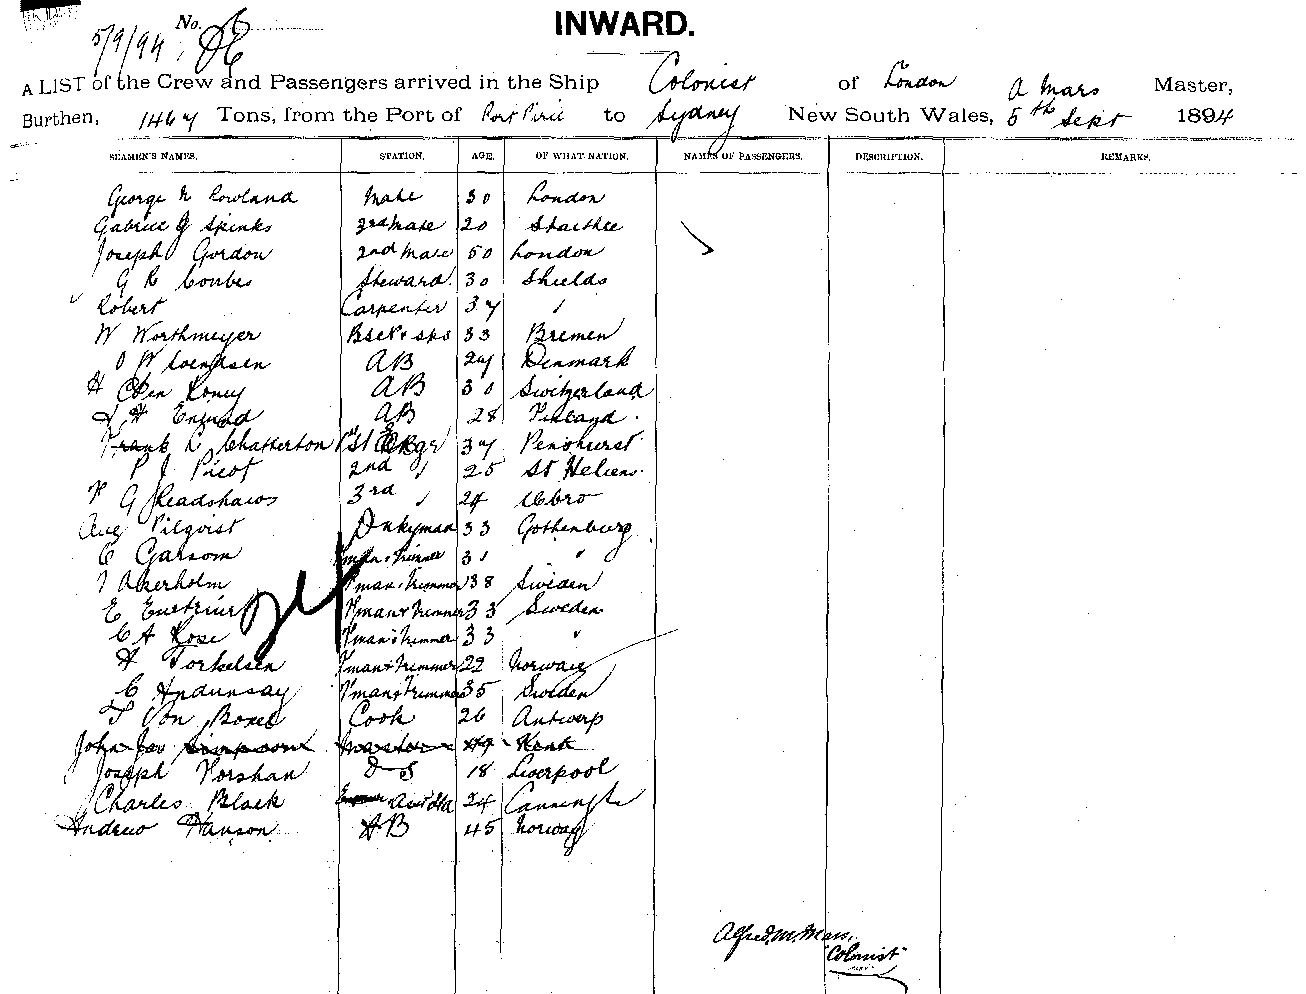 5/9/94 No.
INWARD.
A LIST of the Crew and Passengers arrived in the Ship Colonist of London A Mars Master,
Burthen, 1467 Tons, from the Port of Port Pirie to Sydney New South Wales, 5th Sept 1894
SEAMEN'S NAMES. STATION. AGE. OF WHAT NATION. NAMES OF PASSENGERS. DESCRIPTION. REMARKS.
George N Rowland Mate 30 London
Gabriel J Spinks 3rd Mate 20
Joseph Gordon 2nd Mate 50 London
G R Coubes Steward 30 Shields
Robert Carpenter 37 "
W Worthmeyer 33 Bremen
AB 27 Denmark
AB 30 Switzerland
AB 28 Finland
Frank L Chatterton 1st Engr 37 Penshurst
P J Picot 2nd " 25 St Heliens
G Readshaws 3rd " 24
Aug Pilqvist Dnkyman 33 Gothenburg
C Garsom Fman & Trimmer 31 "
Akerholm Fman & Trimmer 38 Sweden
E Fman & Trimmer 33 Sweden
C A Rose Fman & Trimmer 33 "
H Torkelsen Fman & Trimmer 22 Norway
C Fman & Trimmer 35 Sweden
Von Boxel Cook 26 Antwerp
John 49 Kent
Joseph Horshan O S 18 Liverpool
Charles Black 24
Andrew Hanson AB 45 Norway
Alfred. M. Mars.
"Colonist"